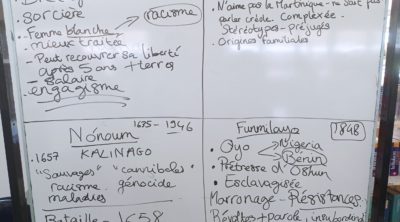 sorcière
racisme
Femme blanche
mieux traitée
- Peut recouvrer sa liberté
après 5 ans + terres
- Salaire
engagisme
N'aime pas la Martinique - ne sait pas
parler créole. Complexée.
Stéréotypes - préjugés
Origines familiales
1635-1946
Nónoum
KALINAGO
1657
"Sauvages" "cannibales"
racisme génocide
maladies
Bataille - 1658
Funmilayo
1848
Oyo
Nigeria
Bénin
Prêtresse d'Oshun
Esclavagisée
Marronage - Résistances